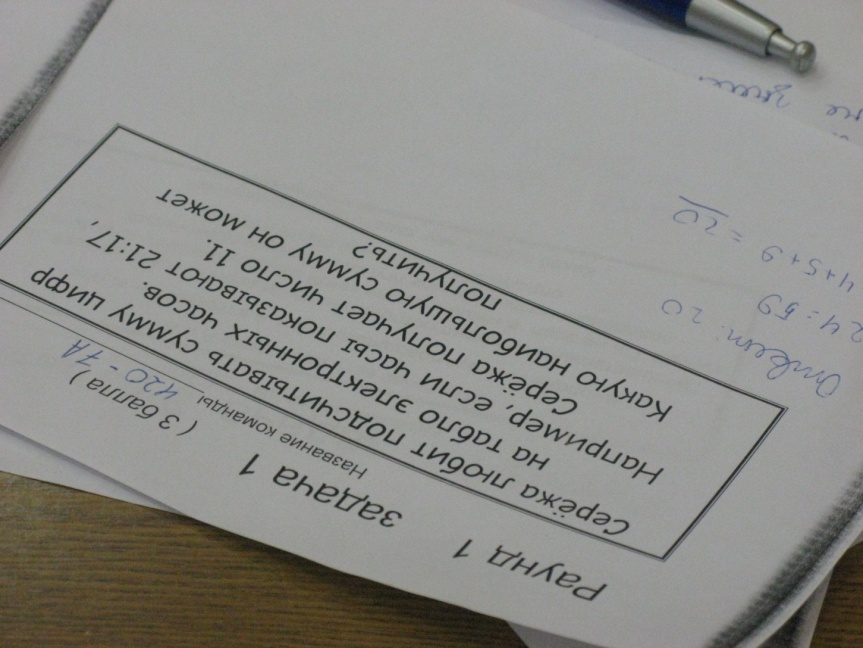 Раунд 1
задача 1
( 3 балла )
Название команды 420 - 7А
Серёжа любит подсчитывать сумму цифр
на табло электронных часов.
Например, если часы показывают 21:17,
Серёжа получает число 11.
Какую наибольшую сумму он может
получить?
Ответ: 20
24:59
4+5+9 = 20